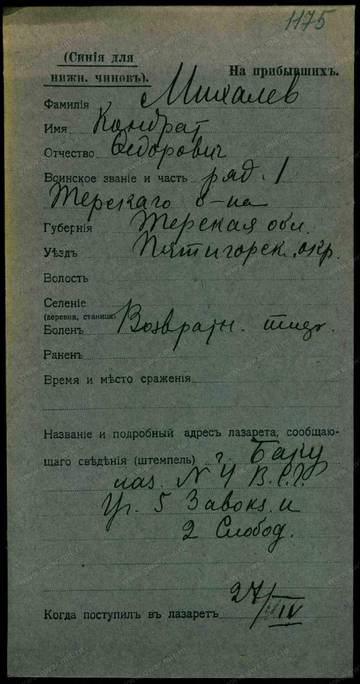 1175
(Синія для
нижн. чиновъ).
На прибывшихъ.
Фамилія Михалев
Имя Кондрат
Отчество Федорович
Воинское званіе и часть ряд. 1
Терскаго б-на
Губернія Терская обл.
Уѣздъ Пятигорск. окр.
Волость
Селеніе
(деревня, станица)
Боленъ Возвратн. тиф.
Раненъ
Время и мѣсто сраженія
Названіе и подробный адресъ лазарета, сообщаю-
щаго свѣдѣнія (штемпель) г. Баку
лаз. N 4 В.С.Г.
Уг. 5 Завокз. и
2 Слобод.
Когда поступилъ въ лазаретъ 27/IV